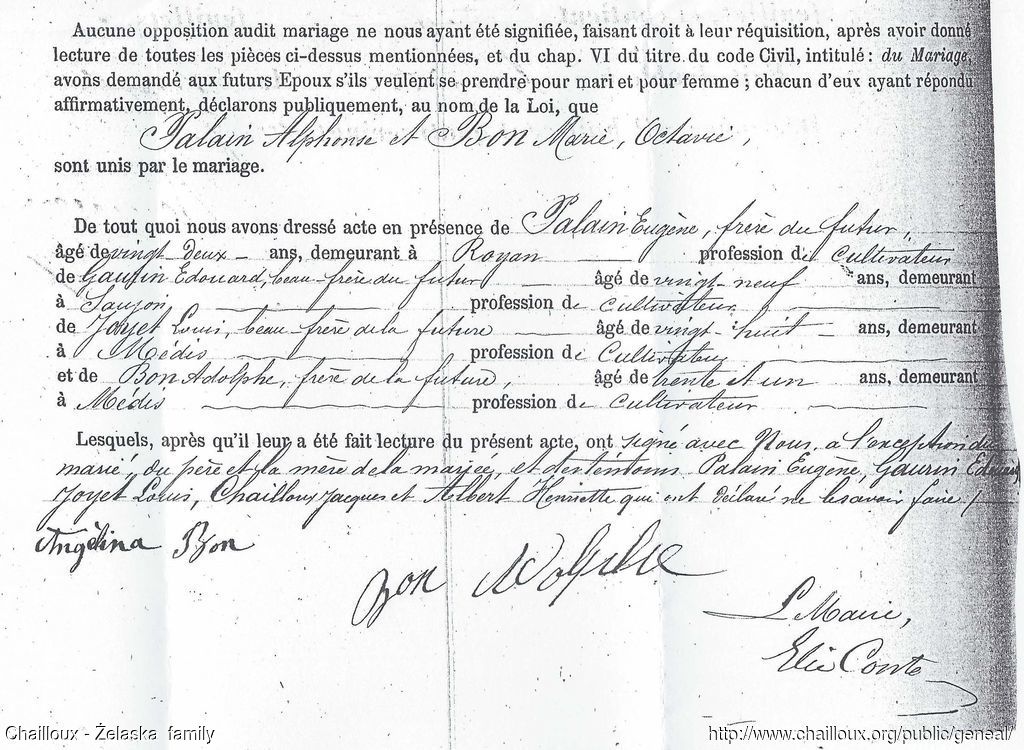 Aucune opposition audit mariage ne nous ayant été signifiée, faisant droit à leur réquisition, après avoir donné
lecture de toutes les pièces ci-dessus mentionnées, et du chap. VI du titre du code Civil, intitulé : du Mariage,
avons demandé aux futurs Epoux s'ils veulent se prendre pour mari et pour femme ; chacun d'eux ayant répondu
affirmativement, déclarons publiquement, au nom de la Loi, que
Palain Alphonse et Bon Marie, Octavie,
sont unis par le mariage.
De tout quoi nous avons dressé acte en présence de Palain Eugène, frère du futur,
âgé de vingt-deux - ans, demeurant à Royan profession de Cultivateur
de Gaurin Edouard, beau-frère du futur âgé de vingt-neuf ans, demeurant
à Saujon profession de Cultivateur
de Joyet Louis, beau frère de la future âgé de vingt-huit ans, demeurant
à Médis profession de Cultivateur
et de Bon Adolphe, frère de la future, âgé de trente et un ans, demeurant
à Médis profession de Cultivateur
Lesquels, après qu'il leur a été fait lecture du présent acte, ont signé avec Nous, à l'exception du
marié, du père et la mère de la mariée, et des témoins Palain Eugène, Gaurin Edouard,
Joyet Louis, Chailloux Jacques et Albert Henriette qui ont déclaré ne le savoir faire /
Angélina Bon
Bon Adolphe
Le Maire,
Elie Conte
Chailloux - Żelaska family
http://www.chailloux.org/public/geneal/